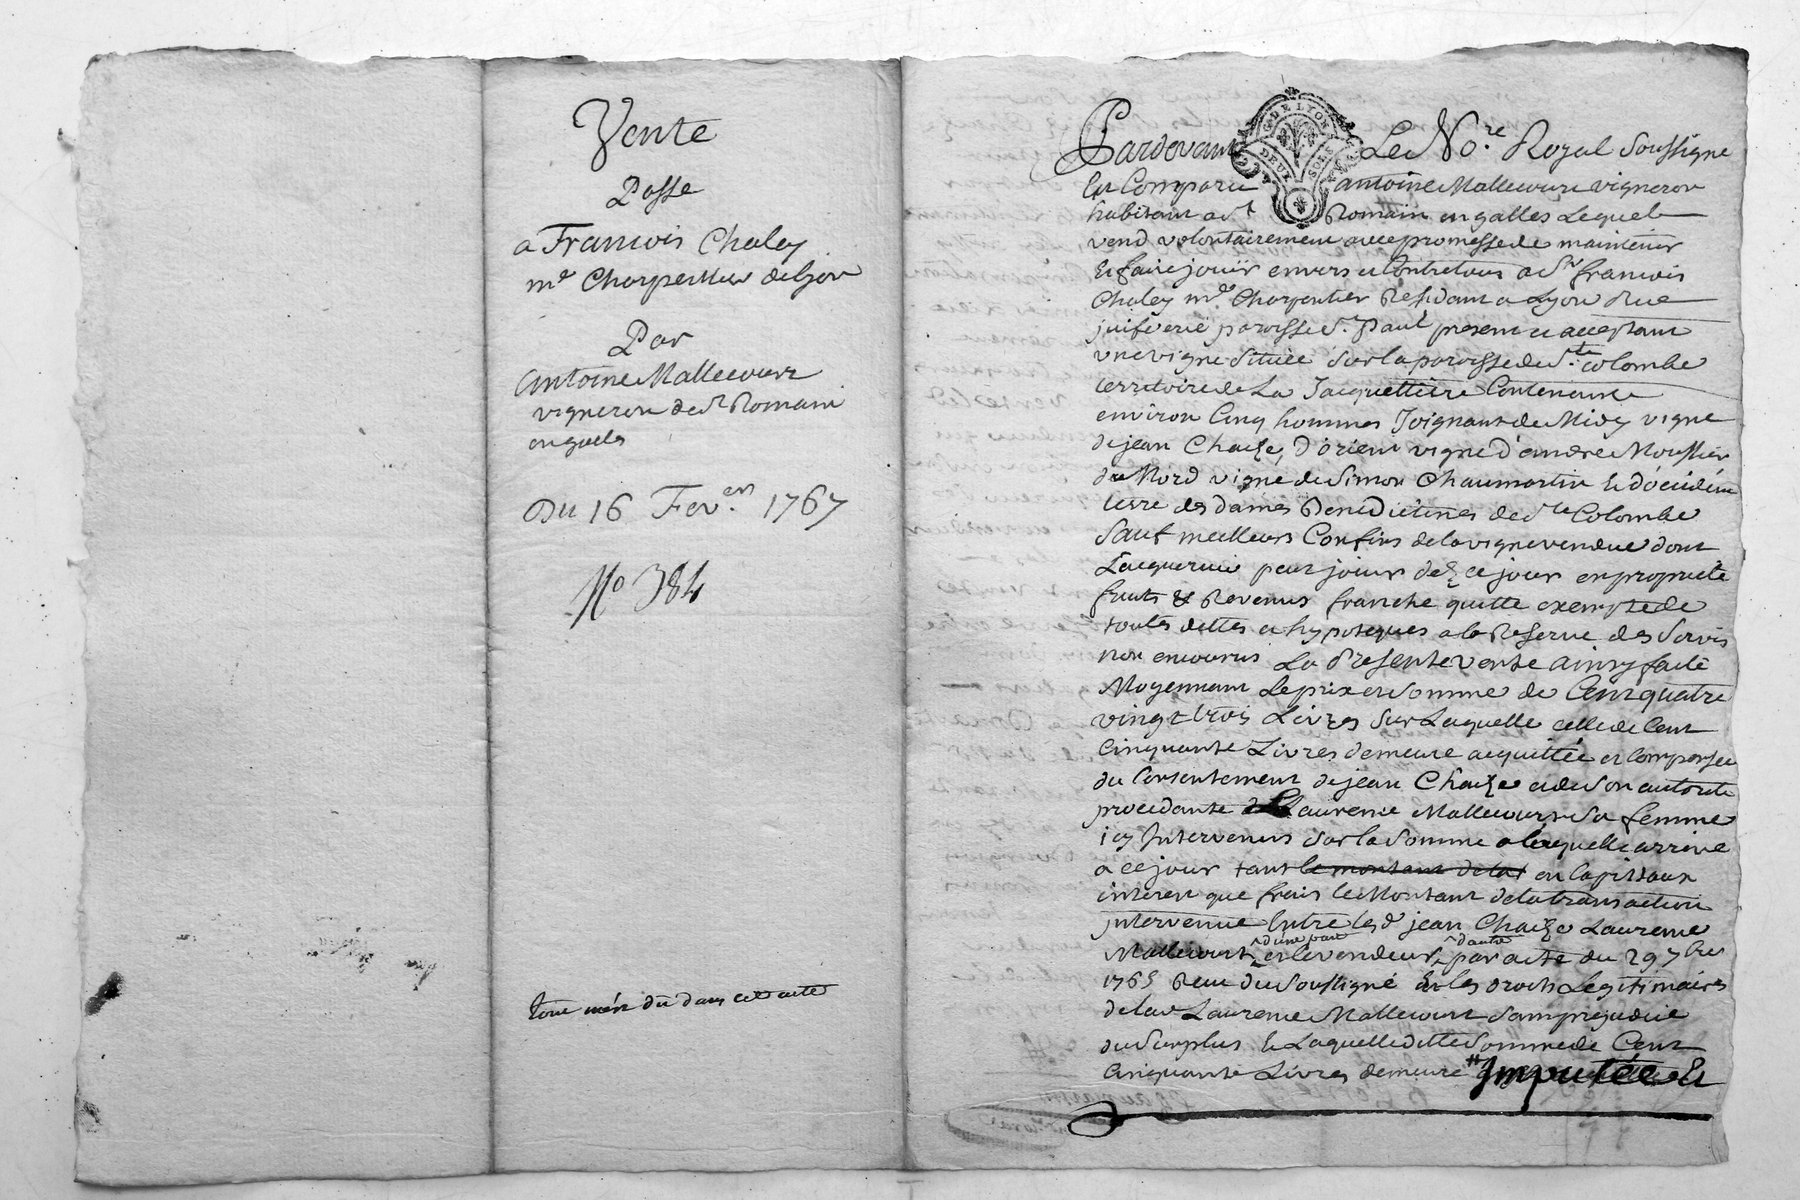 Vente
Passe
a Francois Chaley
md Charpentier de lyon
Par
Antoine Mallecourt
vigneron de st Romain
en galles
Du 16 Fev.er 1767
No 384
Pardevant Le No.re Royal Soussigne
En Comparu antoine Mallecourt vigneron
habitant a st Romain en galles Lequel
vend volontairement avec promesse de maintenir
Et faire jouir envers et Contre tous a Sr francois
Chaley md Charpentier Residant a Lyon Rue
juifverie paroisse st. paul present et acceptant
vne vigne Situeé Sur la paroisse de Ste. colombe
territoire de La Jacquettiere Contenante
environ Cinq hommes Joignant de Midy vigne
de jean Chaize, d'orient vigne d'andre Moussier
du Nord vigne de Simon Chaumartin Et d'occident
terre des dames Benedictines de ste Colombe
Sauf meilleurs Confins de la vigne vendue dont
L'acquereur peut jouir dez ce jour en propriete
fruits & Revenus franche quitte exempte de
toutes dettes et hypoteques a la Reserve des Servis
non encourus La Presente vente ainsy faite
Moyennant Le prix et Somme de Cent quatre
vingt trois Livres Sur Laquelle celle de Cent
Cinquante Livres demeure acquittée et Compensée
du Consentement de jean Chaize et de Son autorite
procedante Laurence Mallecourt Sa femme
icy Intervenus Sur la Somme a laquelle arrive
a ce jour tant le montant de la en Capitaux
interest que frais le Montant de la transaction
intervenue Entre lesd jean Chaize Laurence
Mallecourt d'une part et le vendeur d'autre par acte du 29 7bre
1765 Recu du Soussigné Et les droits Legitimaires
de lad Laurence Mallecourt Sans prejudice
du Surplus Et Laquelle ditte Somme de Cent
Cinquante Livres demeure Imputée Et
G. DE LYON
DEUX SOLS